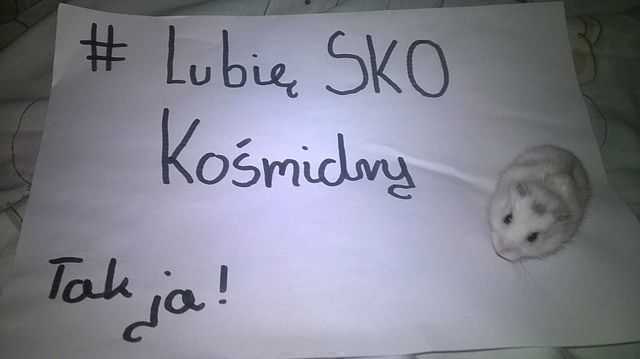 # Lubię SKO
Kośmidry
Tak ja!